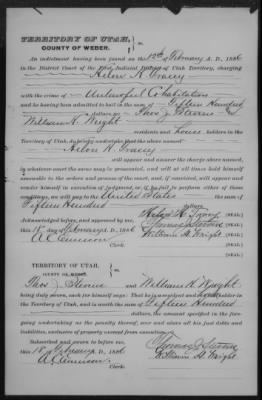 TERRITORY OF UTAH,
COUNTY OF WEBER.
An indictment having been found on the 12th of February A. D., 1886
in the District Court of the First Judicial District of Utah Territory, charging
Helon H Tracy
with the crime of Unlawful Cohabitation
and he having been admitted to bail in the sum of Fifteen Hundred
dollars we Thos J Steone
William H. Wright
residents and householders in the
Territory of Utah, hereby undertake that the above named
Helon H. Tracy
will appear and answer the charge above named,
in whatever court the same may be presented, and will at all times hold himself
amenable to the orders and process of the court, and, if convicted, will appear and
render himself in execution of Judgment, or, if he fail to perform either of these
conditions, we will pay to the United States the sum of
Fifteen Hundred dollars.
Helon H. Tracy [SEAL.]
Acknowledged before, and approved by me, [SEAL.]
this 18 day of February A. D. 1886 William H. Wright [SEAL.]
Clerk. [SEAL.]
TERRITORY OF UTAH,
COUNTY OF WEBER.
Thos J and William H. Wright
being duly sworn, each for himself says: That he is a resident and householder in
the Territory of Utah, and is worth the sum of Fifteen Hundred
dollars, the amount specified in the foregoing
undertaking as the penalty thereof, over and above all his just debts and
liabilities, exclusive of property exempt from execution.
Subscribed and sworn to before me
this 18 of February A. D., 1886 William H. Wright
Clerk.